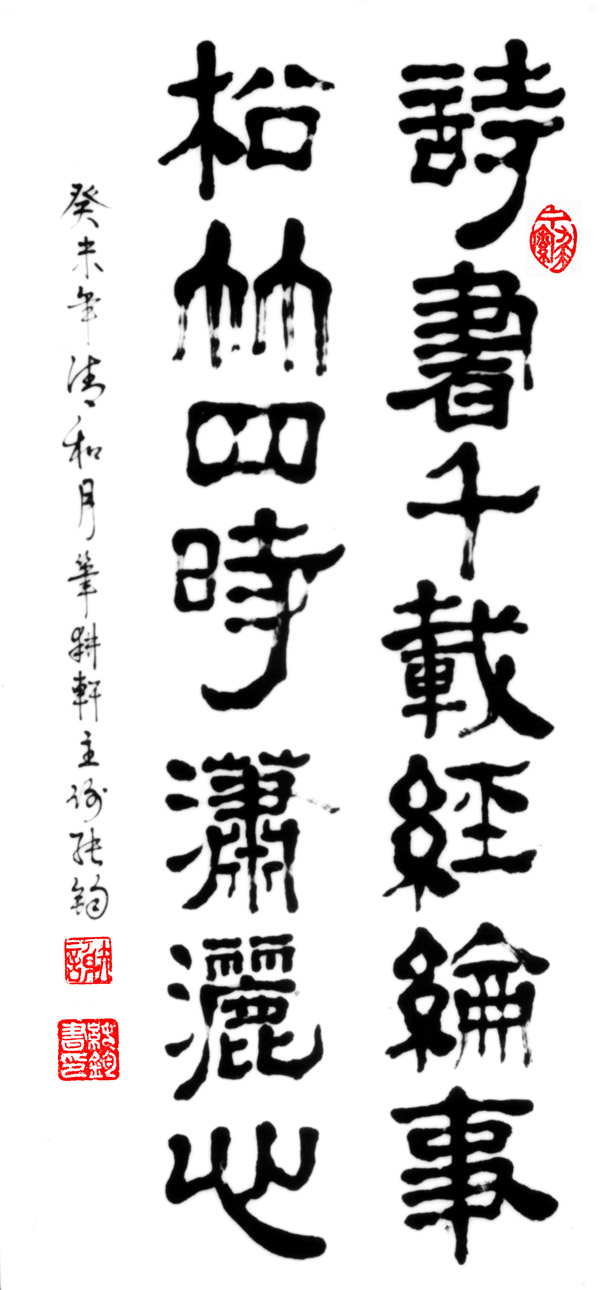 詩書千載經綸事
松竹四時瀟灑心
癸未年清和月筆耕軒主謝
謝
書印